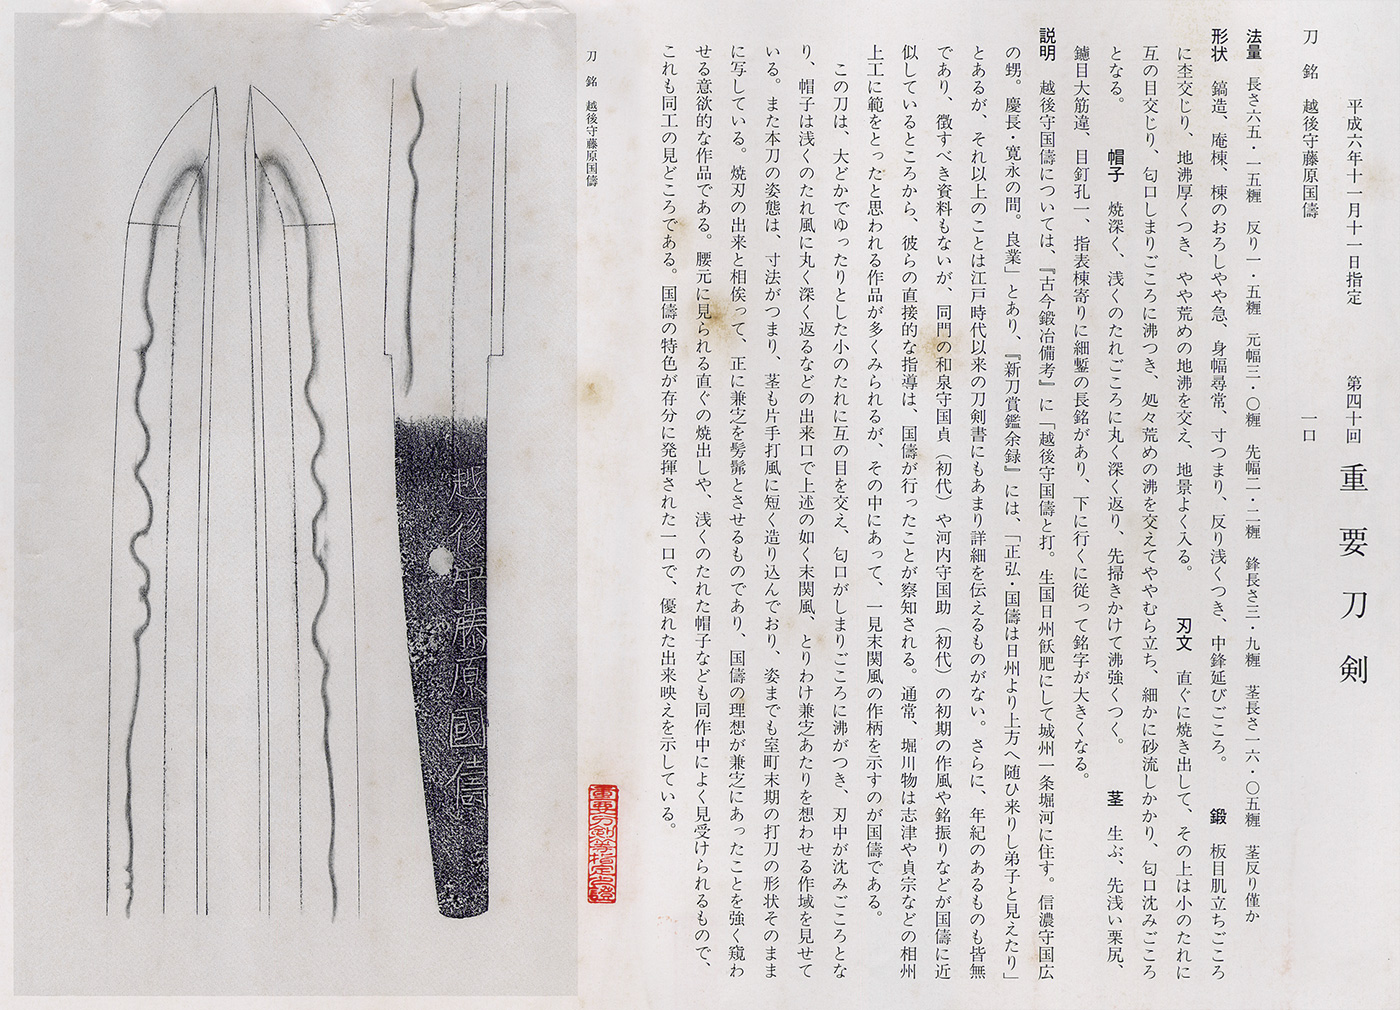 平成六年十一月十一日指定　第四十回　重要刀剣
刀　銘　越後守藤原国儔　一口
法量　長さ六五・一五糎　反り一・五糎　元幅三・〇糎　先幅二・二糎　鋒長さ三・九糎　茎長さ一六・〇五糎　茎反り僅か
形状　鎬造、庵棟、棟のおろしやや急、身幅尋常、寸つまり、反り浅くつき、中鋒延びごころ。　鍛　板目肌立ちごころ
に杢交じり、地沸厚くつき、やや荒めの地沸を交え、地景よく入る。　刃文　直ぐに焼き出して、その上は小のたれに
互の目交じり、匂口しまりごころに沸つき、処々荒めの沸を交えてややむら立ち、細かに砂流しかかり、匂口沈みごころ
となる。　帽子　焼深く、浅くのたれごころに丸く深く返り、先掃きかけて沸強くつく。　茎　生ぶ、先浅い栗尻、
鑢目大筋違、目釘孔一、指表棟寄りに細鏨の長銘があり、下に行くに従って銘字が大きくなる。
説明　越後守国儔については、『古今鍛冶備考』に「越後守国儔と打。生国日州飫肥にして城州一条堀河に住す。信濃守国広
の甥。慶長・寛永の間。良業」とあり、『新刀賞鑑余録』には、「正弘・国儔は日州より上方へ随ひ来りし弟子と見えたり」
とあるが、それ以上のことは江戸時代以来の刀剣書にもあまり詳細を伝えるものがない。さらに、年紀のあるものも皆無
であり、徴すべき資料もないが、同門の和泉守国貞（初代）や河内守国助（初代）の初期の作風や銘振りなどが国儔に近
似しているところから、彼らの直接的な指導は、国儔が行ったことが察知される。通常、堀川物は志津や貞宗などの相州
上工に範をとったと思われる作品が多くみられるが、その中にあって、一見末関風の作柄を示すのが国儔である。
この刀は、大どかでゆったりとした小のたれに互の目を交え、匂口がしまりごころに沸がつき、刃中が沈みごころとな
り、帽子は浅くのたれ風に丸く深く返るなどの出来口で上述の如く末関風、とりわけ兼㝎あたりを想わせる作域を見せて
いる。また本刀の姿態は、寸法がつまり、茎も片手打風に短く造り込んでおり、姿までも室町末期の打刀の形状そのまま
に写している。焼刃の出来と相俟って、正に兼㝎を髣髴とさせるものであり、国儔の理想が兼㝎にあったことを強く窺わ
せる意欲的な作品である。腰元に見られる直ぐの焼出しや、浅くのたれた帽子なども同作中によく見受けられるもので、
これも同工の見どころである。国儔の特色が存分に発揮された一口で、優れた出来映えを示している。
刀　銘　越後守藤原国儔
重要刀剣等指定之證
越後守藤原國儔